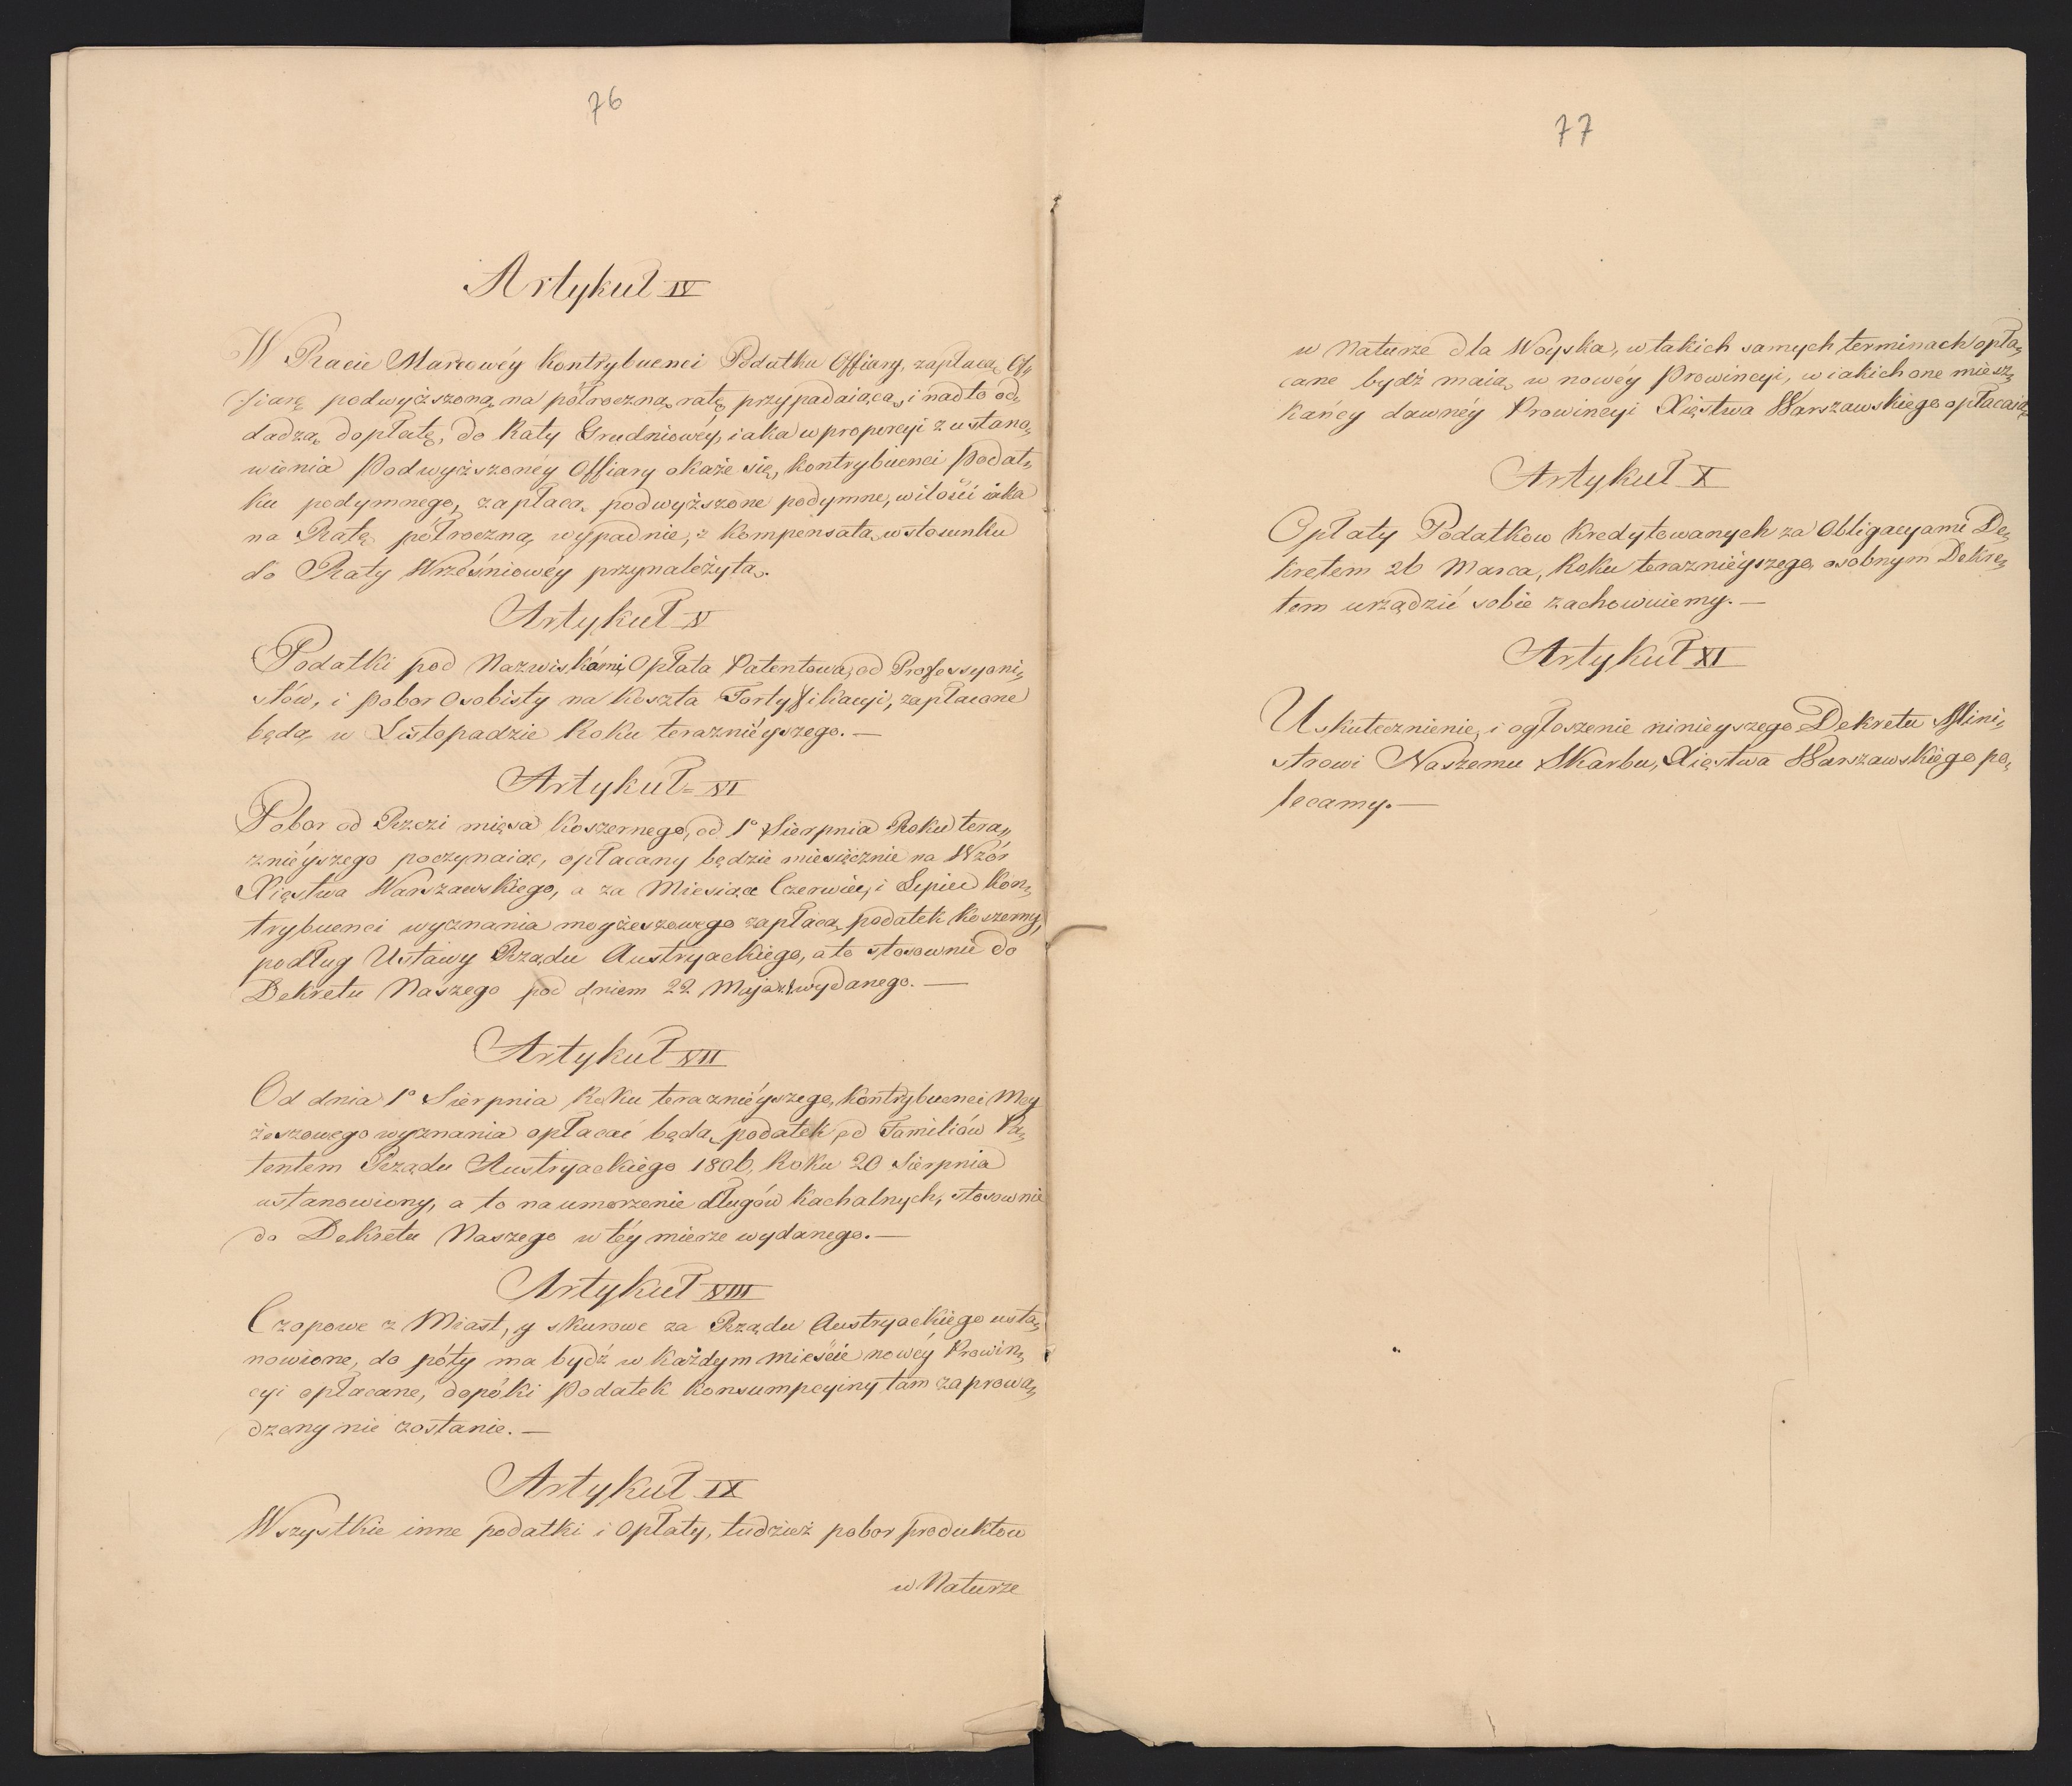 76
Artykuł IV
W Racie Marcowéy Kontrybuenci Podatku Offiary, zapłacą Of„
fiarę podwyższoną na półroczną ratę przypadaiącą, i nadto od„
dadzą dopłatę, do Raty Grudniowéy, iaka w proporcyi z ustano„
wienia Podwyższonéy Offiary okaże się, kontrybuenci Podat„
ku podymnego, zapłacą podwyższone podymne, w ilości iaka
na Ratę półroczną wypadnie, z kompensatą w stosunku
do Raty Wrześniowéy przynależytą.
Artykuł V
Podatki pod Nazwiskámi, Opłata Patentowa, od Professyoni„
stów, i pobor Osobisty na Koszta Fortyfikacyi, zapłacone
będą w Listopadzie Roku terazniéyszego. —
Artykuł VI
Pobor od Rzezi mięsa Koszernego, od 1° Sierpnia Roku tera„
zniéyszego poczynaiąc, opłacany będzie miesięcznie na Wzór
Xięstwa Warszawskiego, a za Miesiące Czerwiec, i Lipiec Kon„
trybuenci wyznania moyżeszowego zapłacą podatek Koszerny,
podług Ustawy Rządu Austryackiego, a to stosownie do
Dekretu Naszego pod dniem 22 Maja r.t. wydanego. —
Artykuł VII
Od dnia 1° Sierpnia Roku teraznieyszego, Kontrybuenci Moy
żeszowego wyznania opłacać będą podatek od Familiów Pa„
tentem Rządu Austryackiego 1806, Roku 20 Sierpnia
ustanowiony, a to na umorzenie długów Kachalnych, stosownie
do Dekretu Naszego w téy mierze wydanego. —
Artykuł VIII
Czopowe z Miast, y skurowe za Rządu Austryackiego usta„
nowione, do póty ma bydź w każdym mieście nowéy Prowin„
cyi opłacane, dopóki Podatek Konsumpcyiny tam zaprowa„
dzony nie zostanie. —
Artykuł IX
Wszystkie inne podatki i Opłaty, tudzież pobor produktow
w Naturze
77
w Naturze dla Woyska, w takich samych terminach opła„
cane bydź maią w nowéy Prowincyi, w iakich one miesz„
kańcy dawnéy Prowincyi Xięstwa Warszawskiego opłacaią
Artykuł X
Opłaty Podatkow Kredytowanych za Obligacyami De„
kretem 26 Marca, Roku teraznieyszego, osobnym Dekre„
tem urządzić sobie zachowuiemy. —
Artykuł XI
Uskutecznienie, i ogłoszenie ninieyszego Dekretu Mini„
strowi Naszemu Skarbu, Xięstwa Warszawskiégo po„
lecamy. —